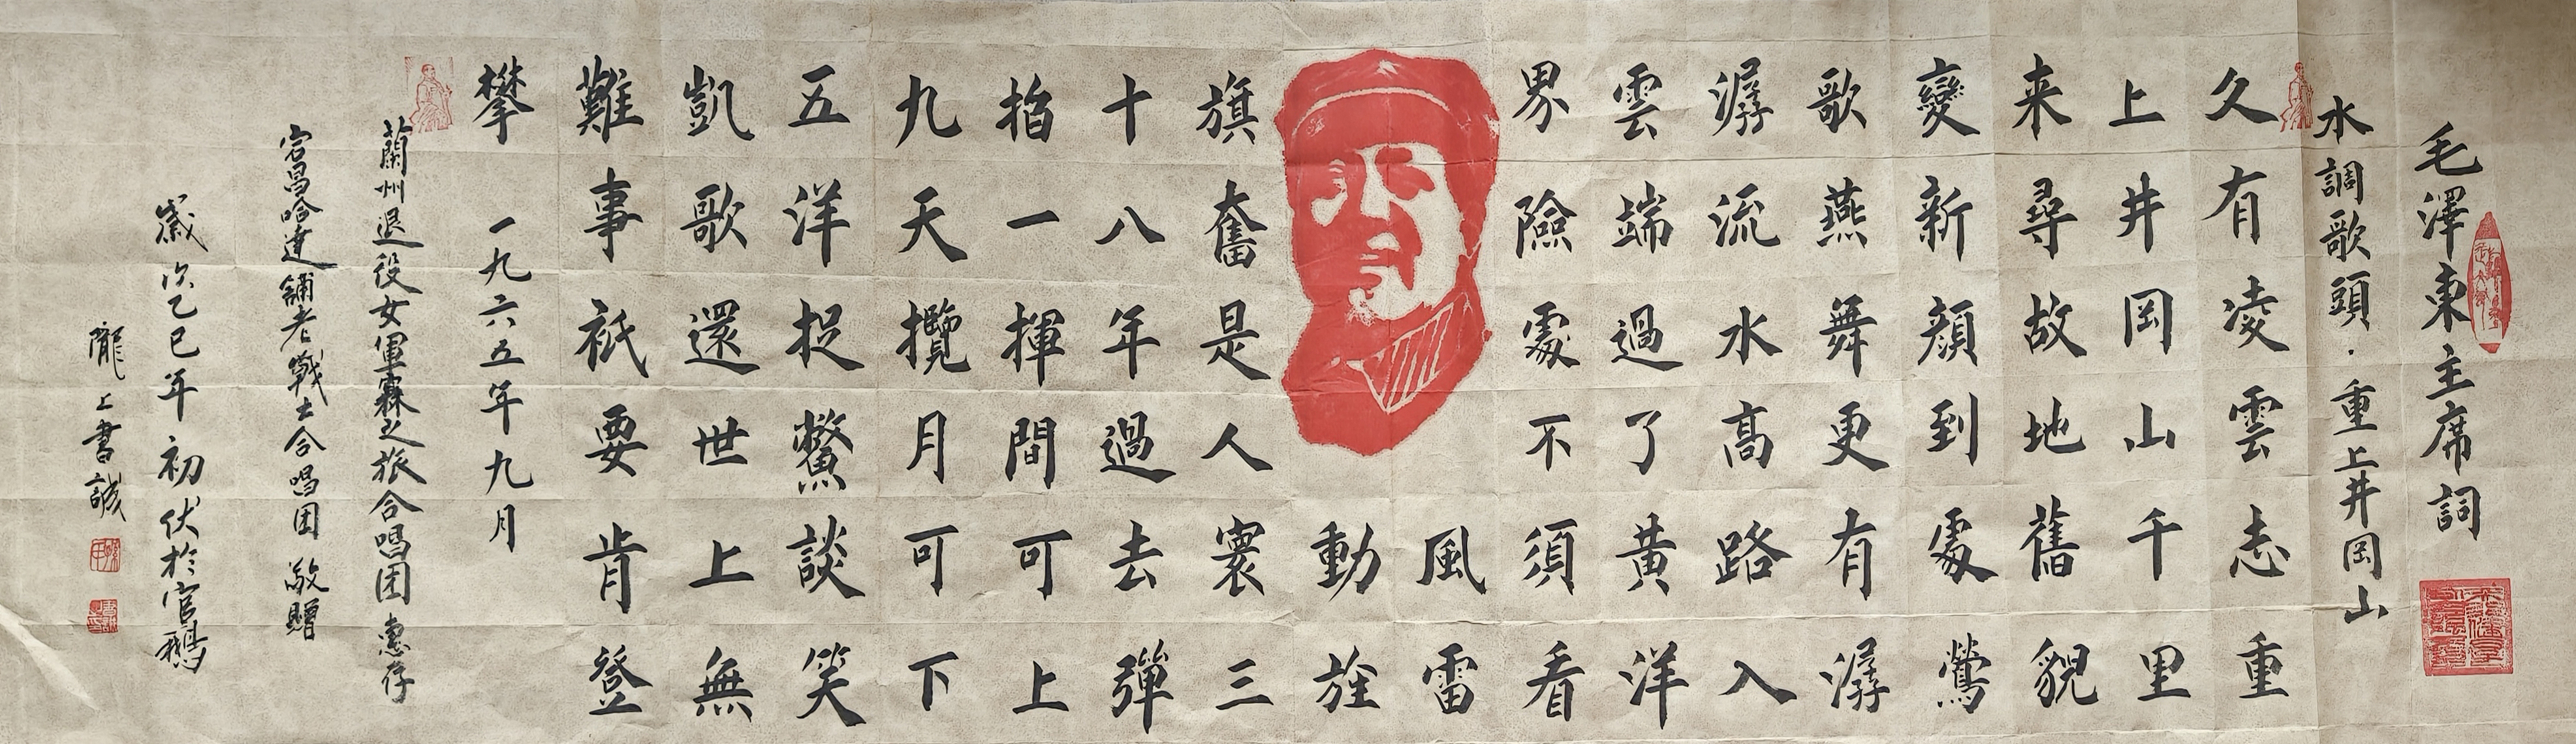 毛澤東主席詞
水調歌頭·重上井岡山
久有凌雲志重
上井岡山千里
来尋故地舊貌
變新顏到處鶯
歌燕舞更有潺
潺流水高路入
雲端過了黃洋
界險處不須看
風雷
動旌
旗奮是人寰三
十八年過去彈
指一揮間可上
九天攬月可下
五洋捉鱉談笑
凱歌還世上無
難事衹要肯登
攀
一九六五年九月
蘭州退役女軍霖之旅合唱团惠存
宕昌哈達鋪老戰士合唱团敬贈
歲次乙巳年初伏於官鵝
隴上書誠